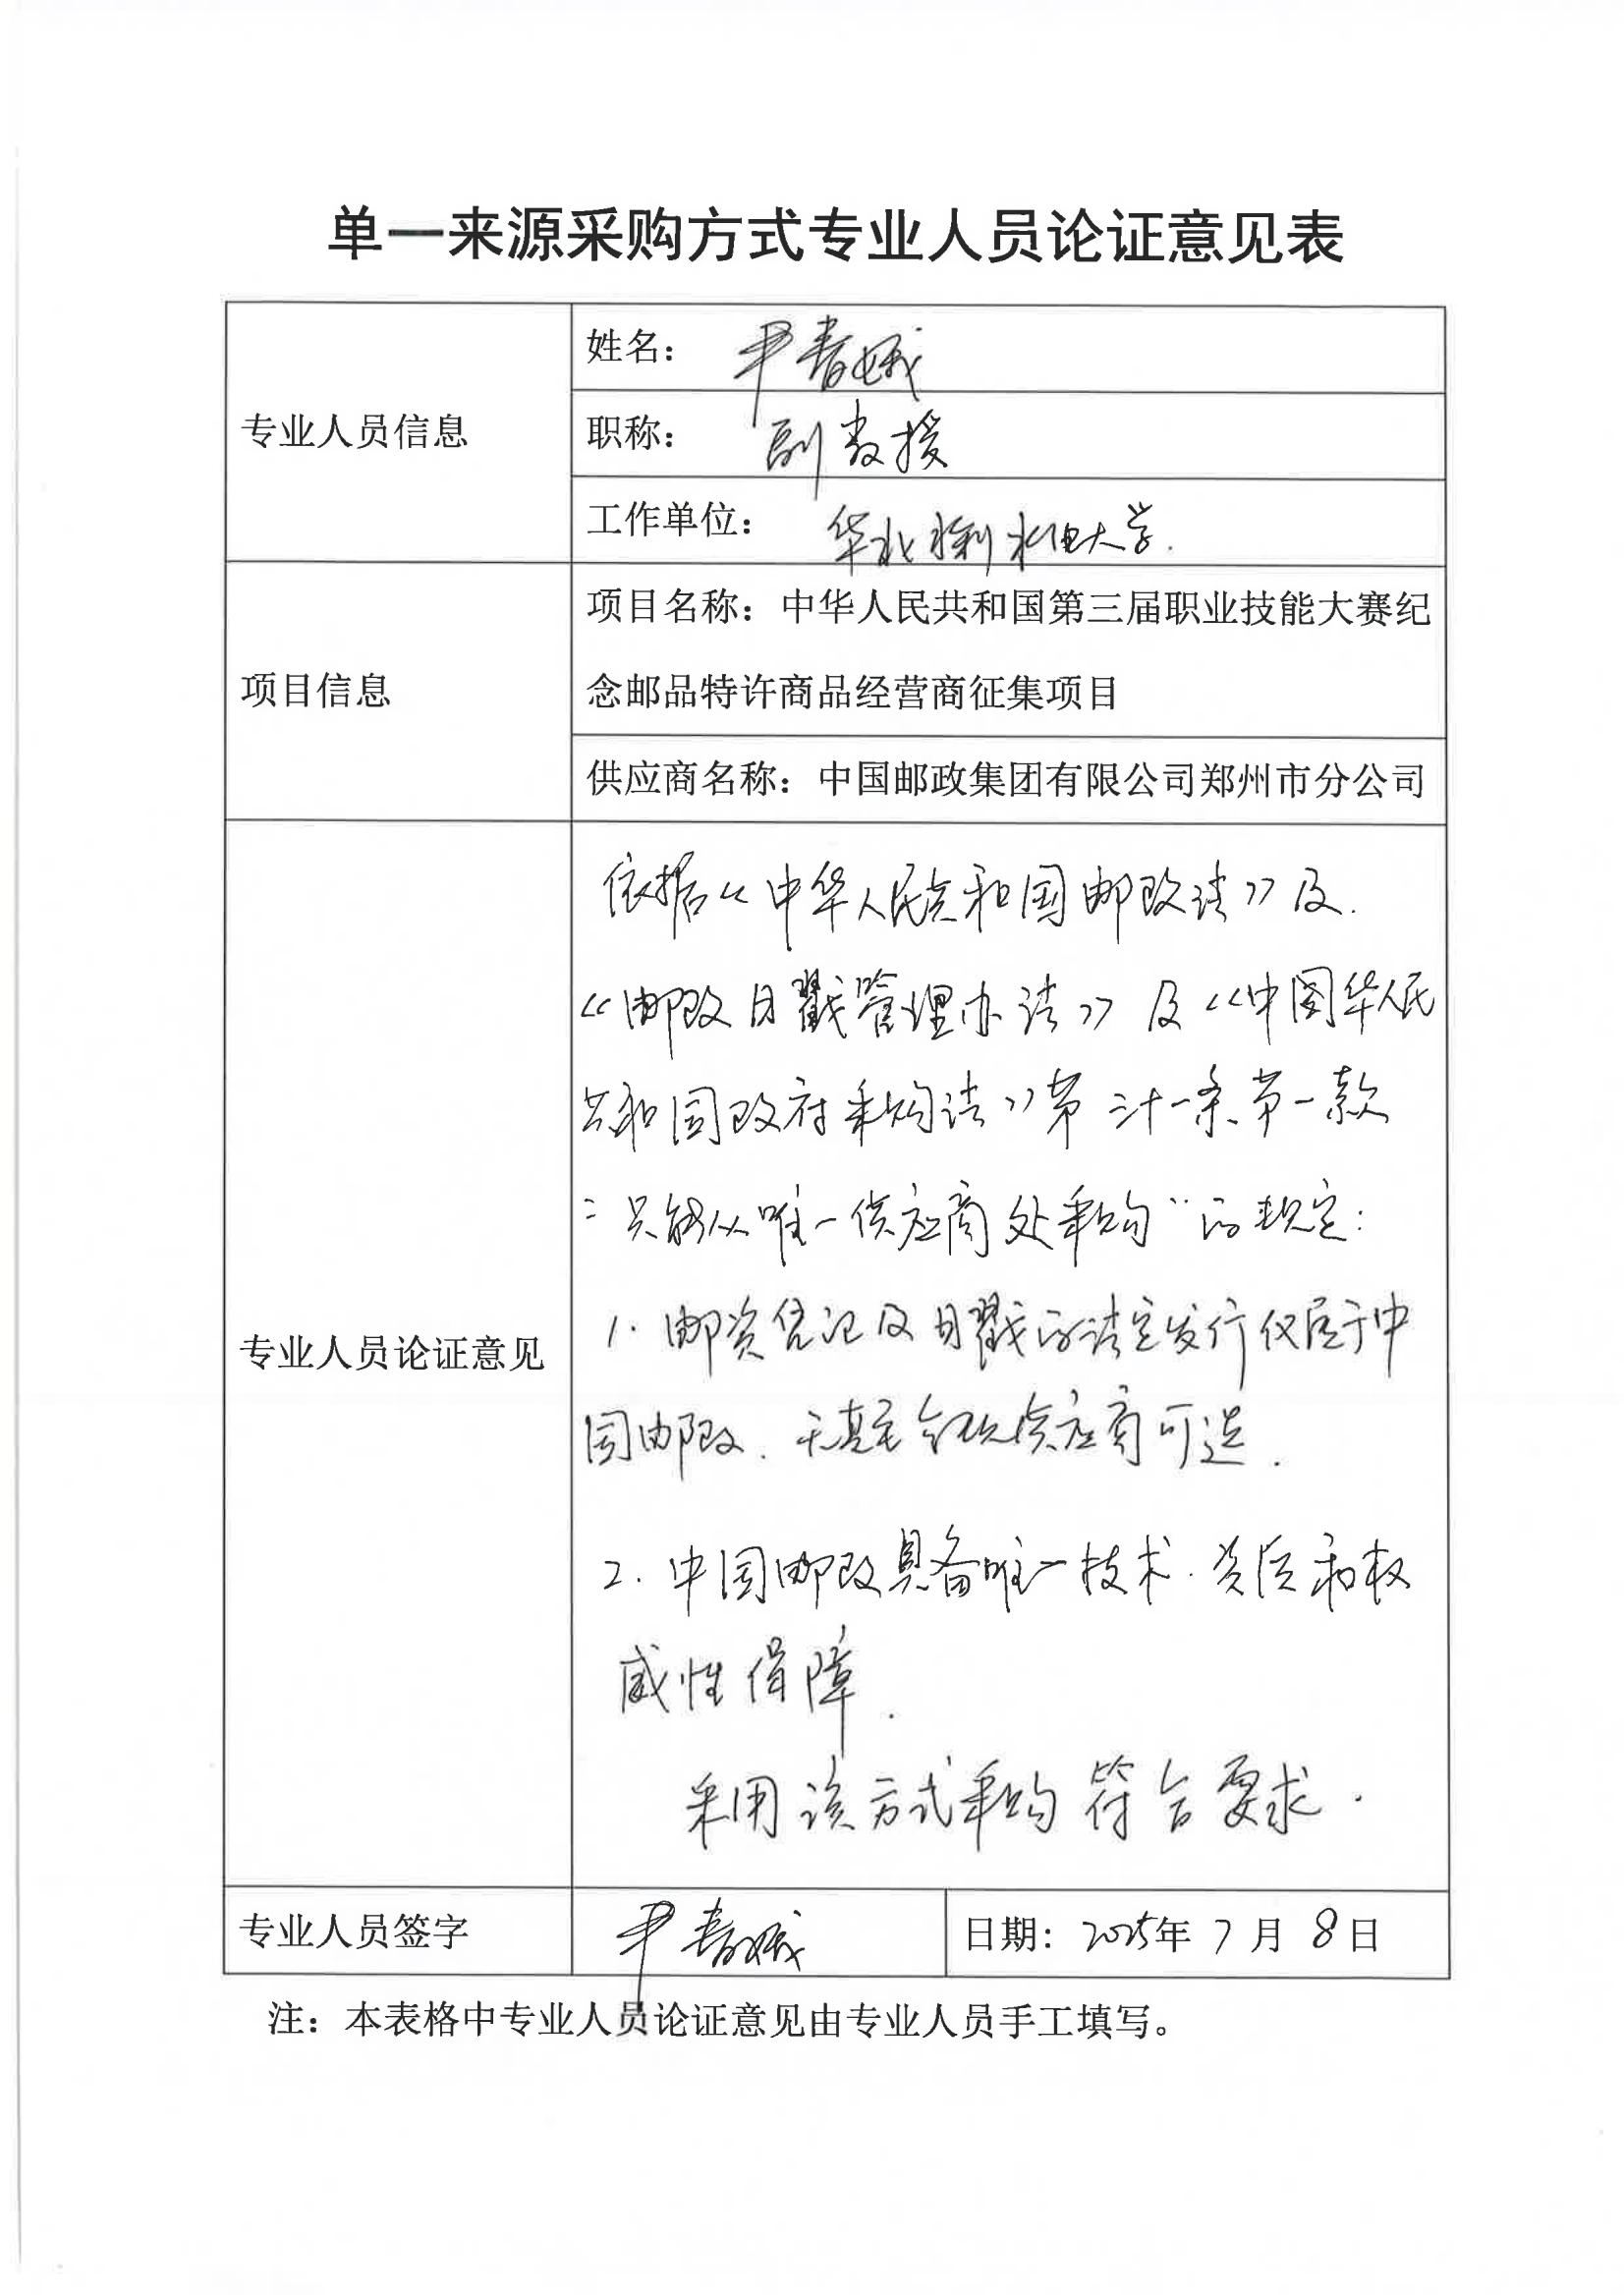 单一来源采购方式专业人员论证意见表
专业人员信息
姓名： 尹春娥
职称： 副教授
工作单位： 华北水利水电大学.
项目信息
项目名称：中华人民共和国第三届职业技能大赛纪
念邮品特许商品经营商征集项目
供应商名称：中国邮政集团有限公司郑州市分公司
专业人员论证意见
依据《中华人民共和国邮政法》及.
《邮政日戳管理办法》及《中国华人民
共和国政府采购法》第三十一条第一款
“只能从唯一供应商处采购”的规定：
1. 邮资凭证及日戳的法定发行仅属于中
国邮政. 无其它合规供应商可选.
2. 中国邮政具备唯一技术.资质和权
威性保障.
采用该方式采购符合要求.
专业人员签字
尹春娥
日期：2025年7月8日
注：本表格中专业人员论证意见由专业人员手工填写。